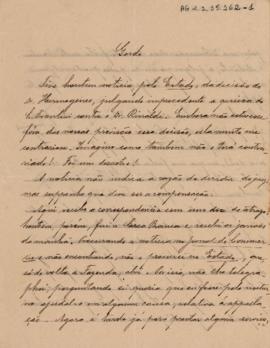 AG 4.2.35.262-1
Gordo
Tive hontem noticia pelo Estado, da decisão do
Dr. Hermogenes, julgando improcedente a questão de
contra o Dr. Rinaldi. Embora não estivesse
fóra das nossas previsão essa decisão, ella muito me
contrariou. Imagino como tambem não o terá contra-
riado! Foi um desastre!
A noticia não indica a razão de decidir do juiz,
mas supponho que deva ser a compensação.
Aqui recebo a correspondencia com um dia de atrazo;
hontem, porém, fui a Serra Branca e recebi os jornaes
da manhã, procurando a noticia no Jornal do Commer-
cio e não encontrando, não a procurei no Estado, que,
só de volta a Fazenda, abri. Se leio, não lhe telegra-
phei, perguntando si queria que eu fosse pelo nocturno
ajudal-o em alguma cousa, relativa á appella-
ção. Agora é tarde já para prestar algum serviço,